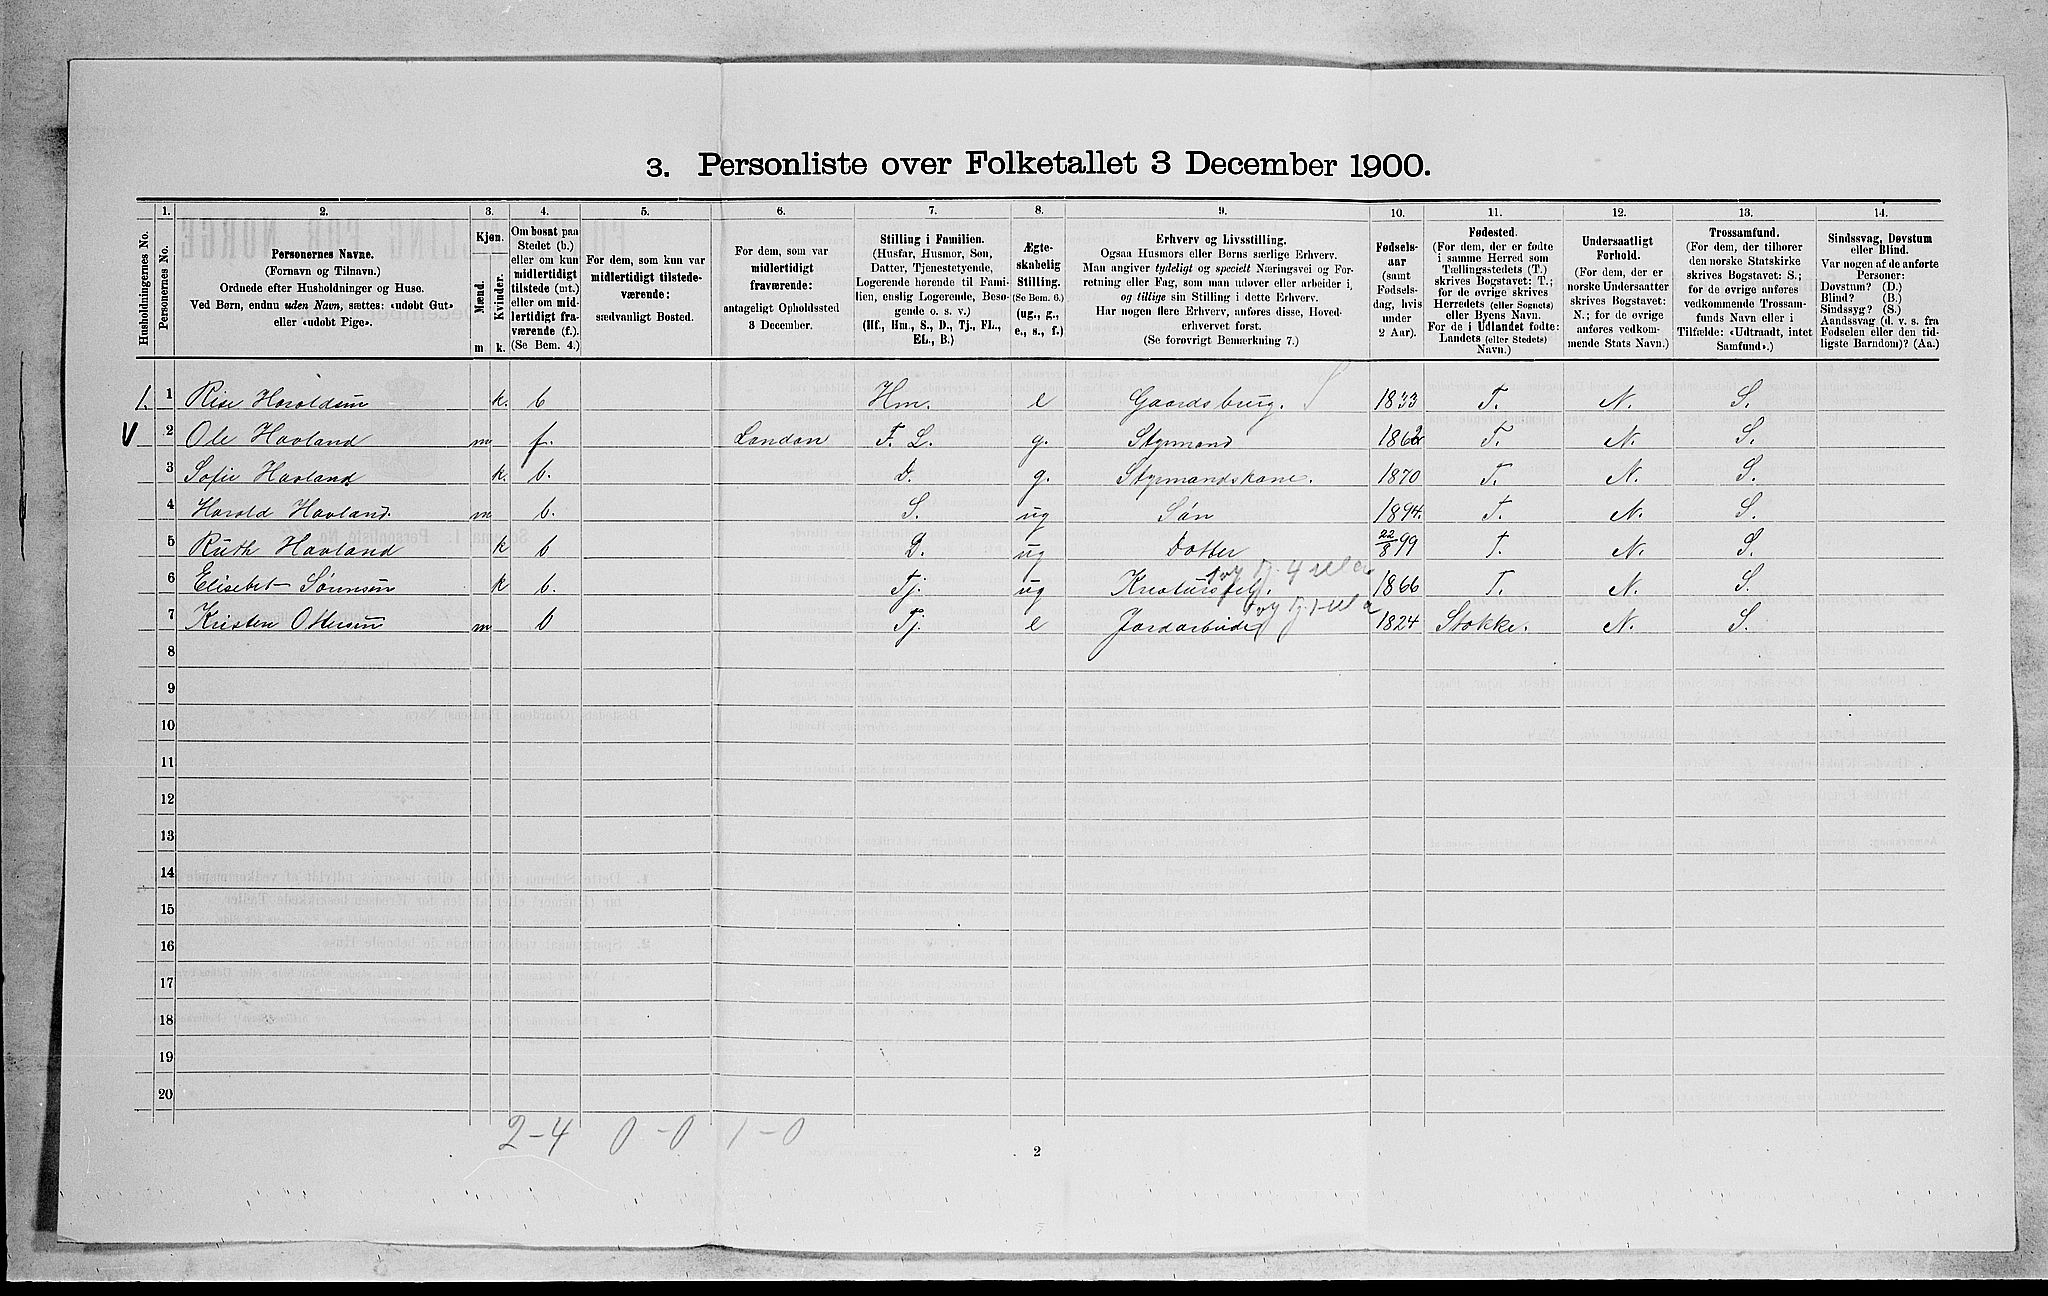 3. Personliste over Folketallet 3 December 1900.
1. 2. 3. 4. 5. 6. 7. 8. 9. 10. 11. 12. 13. 14.
Husholdningernes No.
Personernes No.
Personernes Navne.
(Fornavn og Tilnavn.)
Ordnede efter Husholdninger og Huse.
Ved Børn, endnu uden Navn, sættes: «udøbt Gut»
eller «udøbt Pige».
Kjøn.
Mænd.
Kvinder.
m k.
Om bosat paa
Stedet (b.)
eller om kun
midlertidigt
tilstede (mt.)
eller om mid-
lertidigt fra-
værende (f.).
(Se Bem. 4.)
For dem, som kun var
midlertidigt tilstede-
værende:
sædvanligt Bosted.
For dem, som var
midlertidigt
fraværende:
antageligt Opholdssted
3 December.
Stilling i Familien.
(Husfar, Husmor, Søn,
Datter, Tjenestetyende,
Logerende hørende til Fami-
lien, enslig Logerende, Besø-
gende o. s. v.)
(Hf., Hm., S., D., Tj., FL.,
EL., B.)
Ægte-
skabelig
Stilling.
(Se Bem. 6.)
(ug., g.,
e., s., f.)
Erhverv og Livsstilling.
Ogsaa Husmors eller Børns særlige Erhverv.
Man angiver tydeligt og specielt Næringsvei og For-
retning eller Fag, som man udøver eller arbeider i,
og tillige sin Stilling i dette Erhverv.
Har nogen flere Erhverv, anføres disse, Hoved-
erhvervet først.
(Se forøvrigt Bemærkning 7.)
Fødsels-
aar
(samt
Fødsels-
dag, hvis
under
2 Aar).
Fødested.
(For dem, der er fødte
i samme Herred som
Tællingsstedets (T.)
skrives Bogstavet: T.;
for de øvrige skrives
Herredets (eller Sognets)
eller Byens Navn.
For de i Udlandet fødte:
Landets (eller Stedets)
Navn.)
Undersaatligt
Forhold.
(For dem, der er
norske Undersaatter
skrives Bogstavet:
N.; for de øvrige
anføres vedkom-
mende Stats Navn.)
Trossamfund.
(For dem, der tilhører
den norske Statskirke
skrives Bogstavet: S.;
for de øvrige anføres
vedkommende Trossam-
funds Navn eller i
Tilfælde: «Udtraadt, intet
Samfund».)
Sindssvag, Døvstum
eller Blind.
Var nogen af de anførte
Personer:
Døvstum? (D.)
Blind? (B.)
Sindssyg? (S.)
Aandssvag (d. v. s. fra
Fødselen eller den tid-
ligste Barndom)? (Aa.)
1. 1 k. b Hm. e Gaardsbrug. 1833 T. N. S.
V 2 Ole Havland m f. London F. L. g. Styrmand 1862 T. N. S.
3 Sofie Havland k. b. D. g. Styrmandskone. 1870 T. N. S.
4 Harald Havland. m b. S. ug Søn 1894. T. N. S.
5 Ruth Havland k b D. ug Dotter 22/8 99 T. N. S.
6 Elisebet Sørensen k b. Tj. ug 1866 T. N. S.
7 Kristen Ottersen m b Tj. e Jordarbeide 1824 Stokke. N. S.
8
9
10
11
12
13
14
15
16
17
18
19
20
2-4 0-0 1-0
2